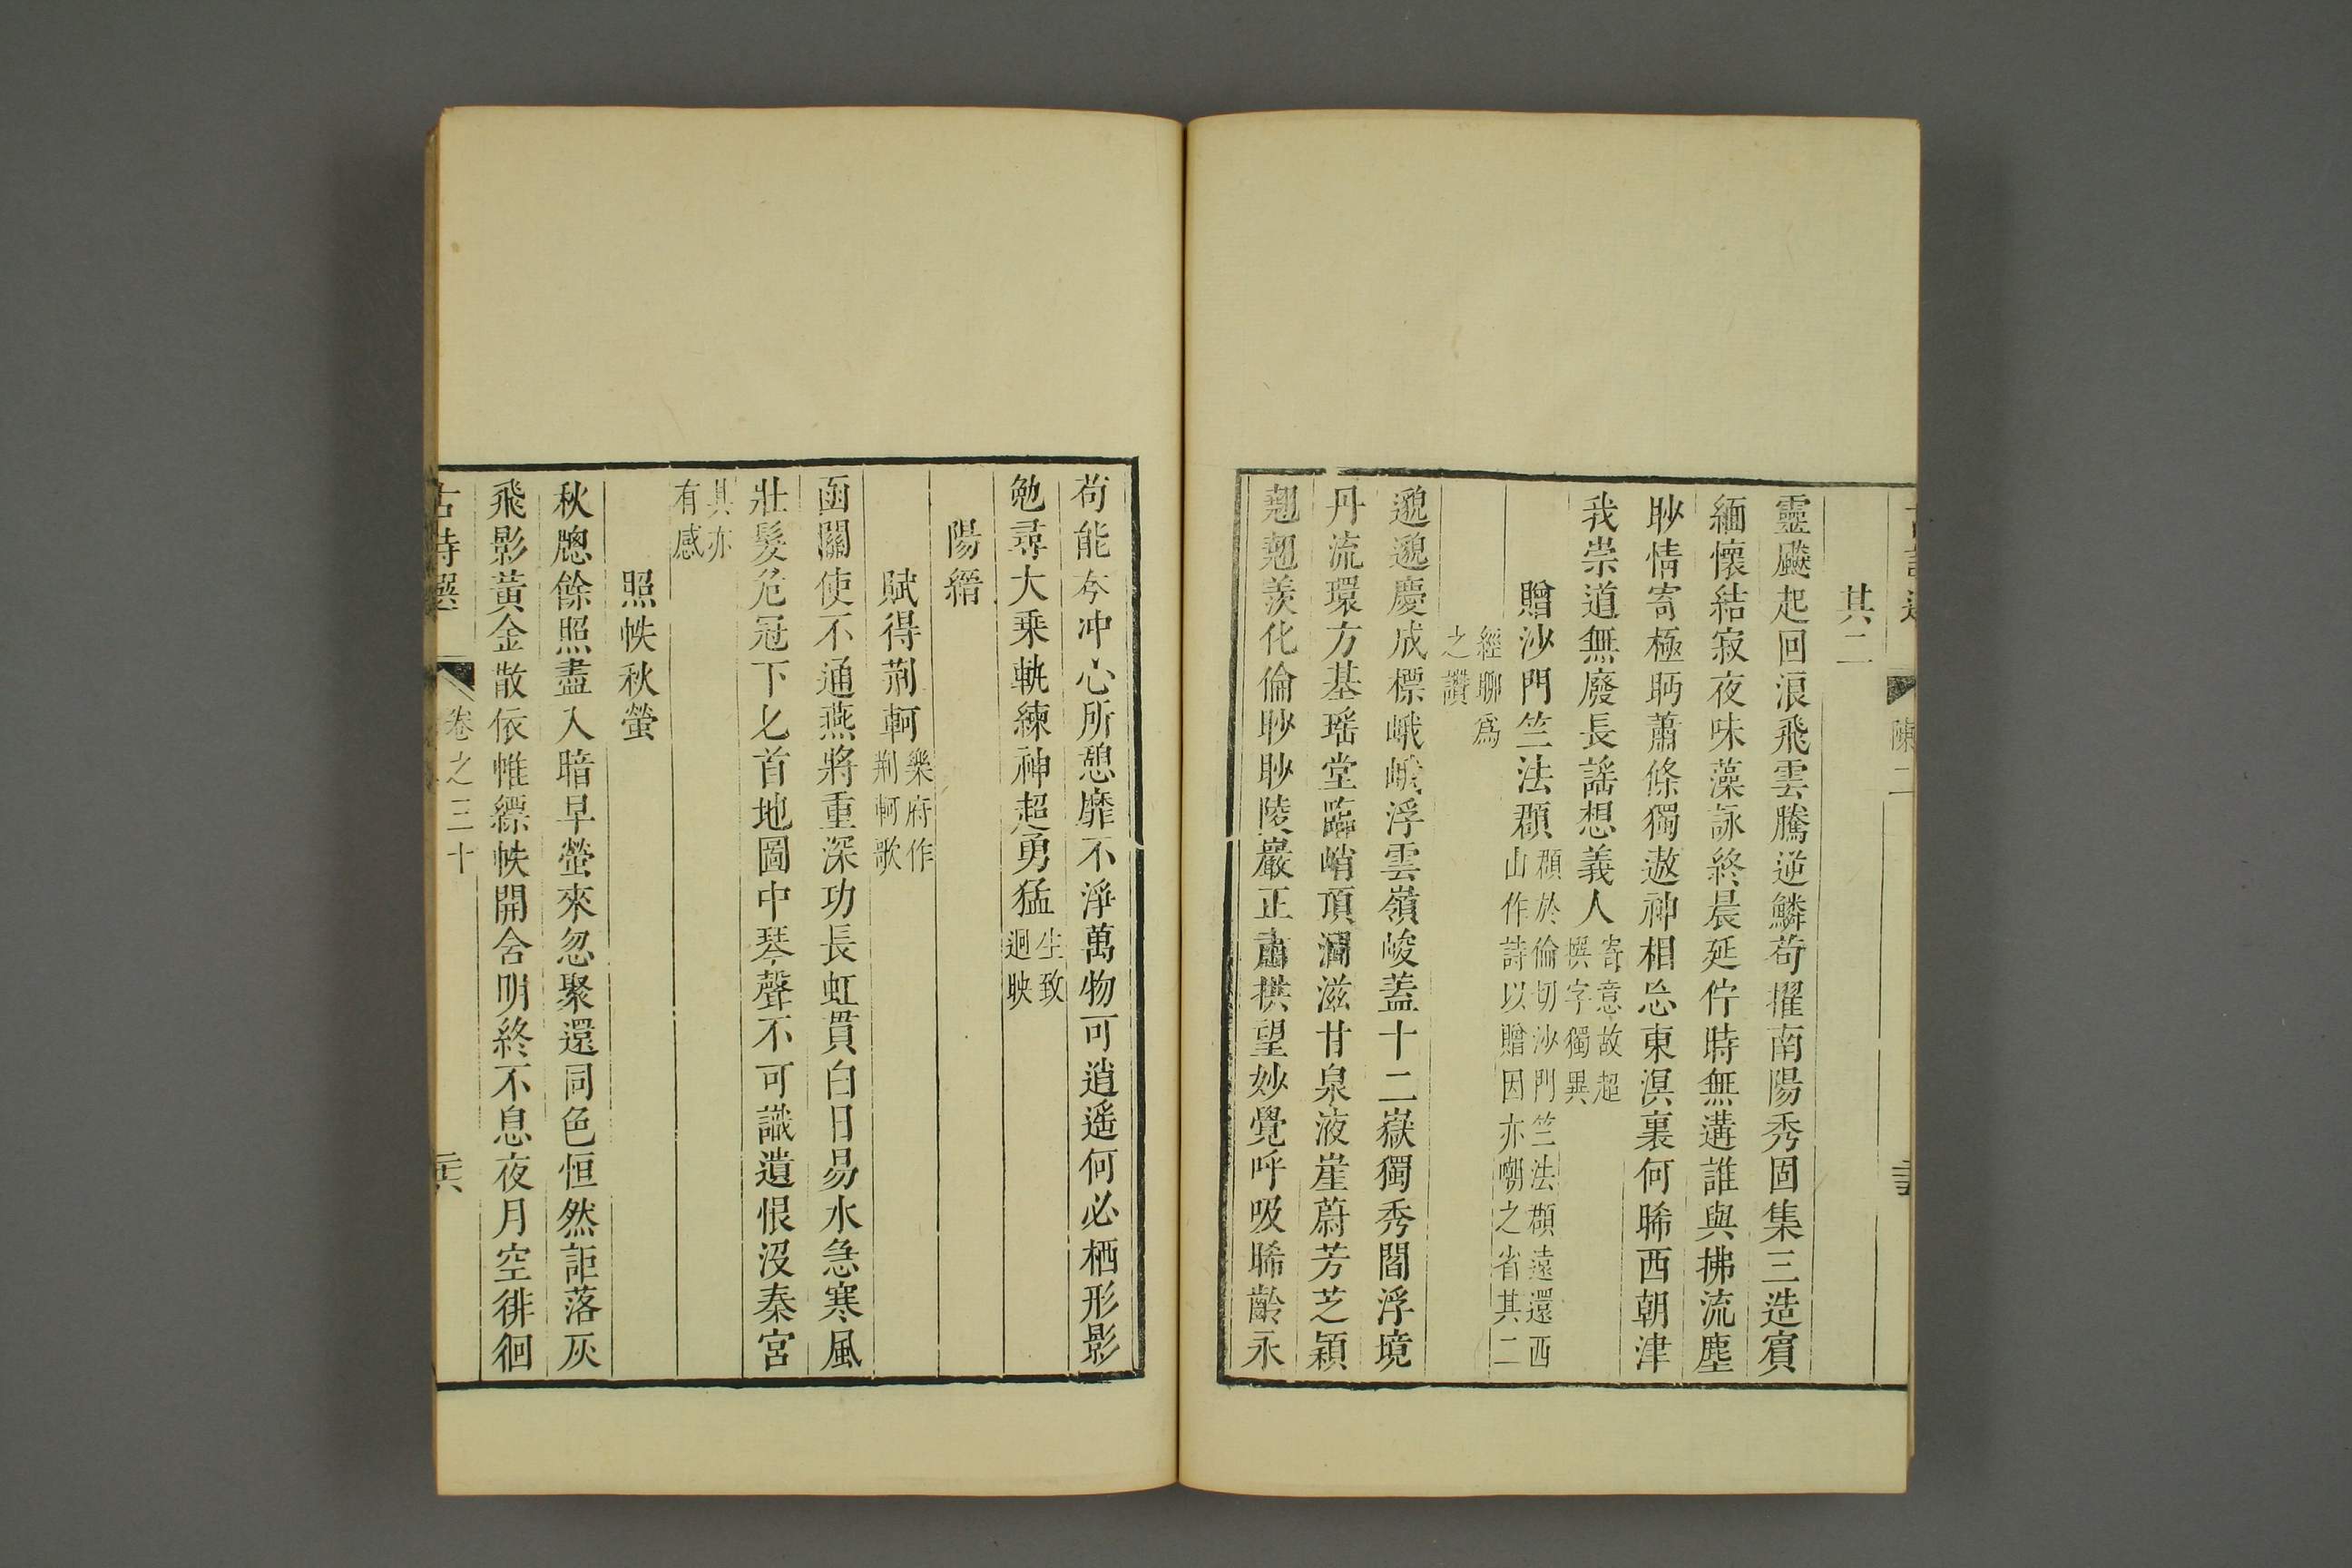 陳二
其二
靈飈起回浪飛雲騰逆鱗苟擢南陽秀固集三造賓
緬懷結寂夜味藻詠終晨延佇時無遘誰與拂流塵
眇情寄極眄蕭條獨遨神相忘東溟裏何晞西朝津
我崇道無廢長謠想義人寄意故超
撰字獨異
贈沙門竺法頵頵於倫切沙門竺法頵遠還西
山作詩以贈因亦嘲之省其二
經聊爲
之讚
邈邈慶成標峨峨浮雲嶺峻蓋十二嶽獨秀閻浮境
丹流環方基瑶堂臨峭頂澗滋甘泉液崖蔚芳芝穎
翹翹羨化倫眇眇陵巖正肅拱望妙覺呼吸晞齡永
苟能夸冲心所憩靡不淨萬物可逍遥何必栖形影
勉尋大乗軌練神超勇猛生致
迥映
陽縉
賦得荊軻樂府作
荊軻歌
函關使不通燕將重深功長虹貫白日易水急寒風
壯髮危冠下匕首地圖中琴聲不可識遺恨没秦宮
具亦
有感
照帙秋螢
秋牕餘照盡入暗早螢來忽聚還同色恒然詎落灰
飛影黃金散依帷縹帙開含明終不息夜月空徘徊
古詩選
卷之三十